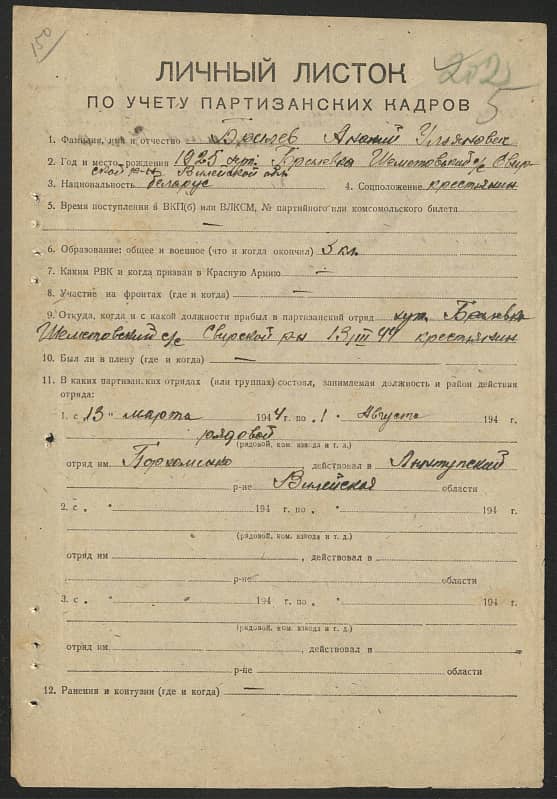 150
202
5
ЛИЧНЫЙ ЛИСТОК
ПО УЧЕТУ ПАРТИЗАНСКИХ КАДРОВ
1. Фамилия, имя и отчество Ананий Ульянович
2. Год и место рождения 1925 Шеметовский с/с Свир-
ской р-н Вилейской обл
3. Национальность беларус 4. Соцположение крестьянин
5. Время поступления в ВКП(б) или ВЛКСМ, № партийного или комсомольского билета
6. Образование: общее и военное (что и когда окончил) 3 кл.
7. Каким РВК и когда призван в Красную Армию —
8. Участие на фронтах (где и когда) —
9. Откуда, когда и с какой должности прибыл в партизанский отряд хут.
Шеметовский с/с Свирской р-н 13/III 44 крестьянин
10. Был ли в плену (где и когда) —
11. В каких партизанских отрядах (или группах) состоял, занимаемая должность и район действия
отряда:
1. с „13" марта 1944 г. по „1" Августа 194 г.
рядовой
(рядовой, ком. взвода и т. д.)
отряд им. Пархоменко действовал в Лынтупский
р-не Вилейская области
2. с „ " 194 г. по „ " 194 г.
(рядовой, ком. взвода и т. д.)
отряд им , действовал в
р-не области
3. с „ " 194 г. по „ " 194 г.
(рядовой, ком. взвода и т. д.)
отряд им , действовал в
р-не области
12. Ранения и контузии (где и когда) —